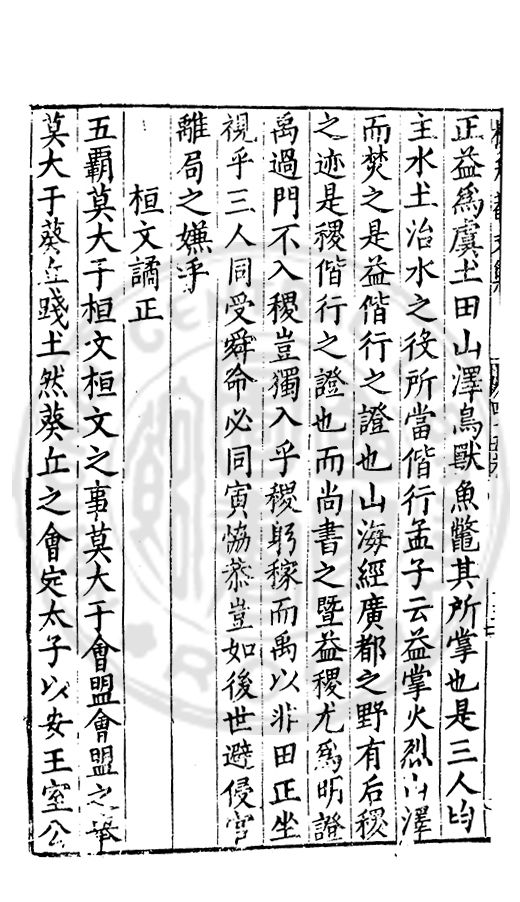 正益為虞土田山澤鳥獸魚鼈其所掌也是三人均
主水土治水之役所當偕行孟子云益掌火烈山澤
而焚之是益偕行之證也山海經廣都之野有后稷
之迹是稷偕行之證也而尚書之暨益稷尤為明證
禹過門不入稷豈獨入乎稷躬稼而禹以非田正坐
視乎三人同受舜命必同寅協恭豈如後世避侵官
離局之嫌乎
桓文譎正
五霸莫大于桓文桓文之事莫大于會盟會盟之舉
莫大于葵丘踐土然葵丘之會定太子以安王室公